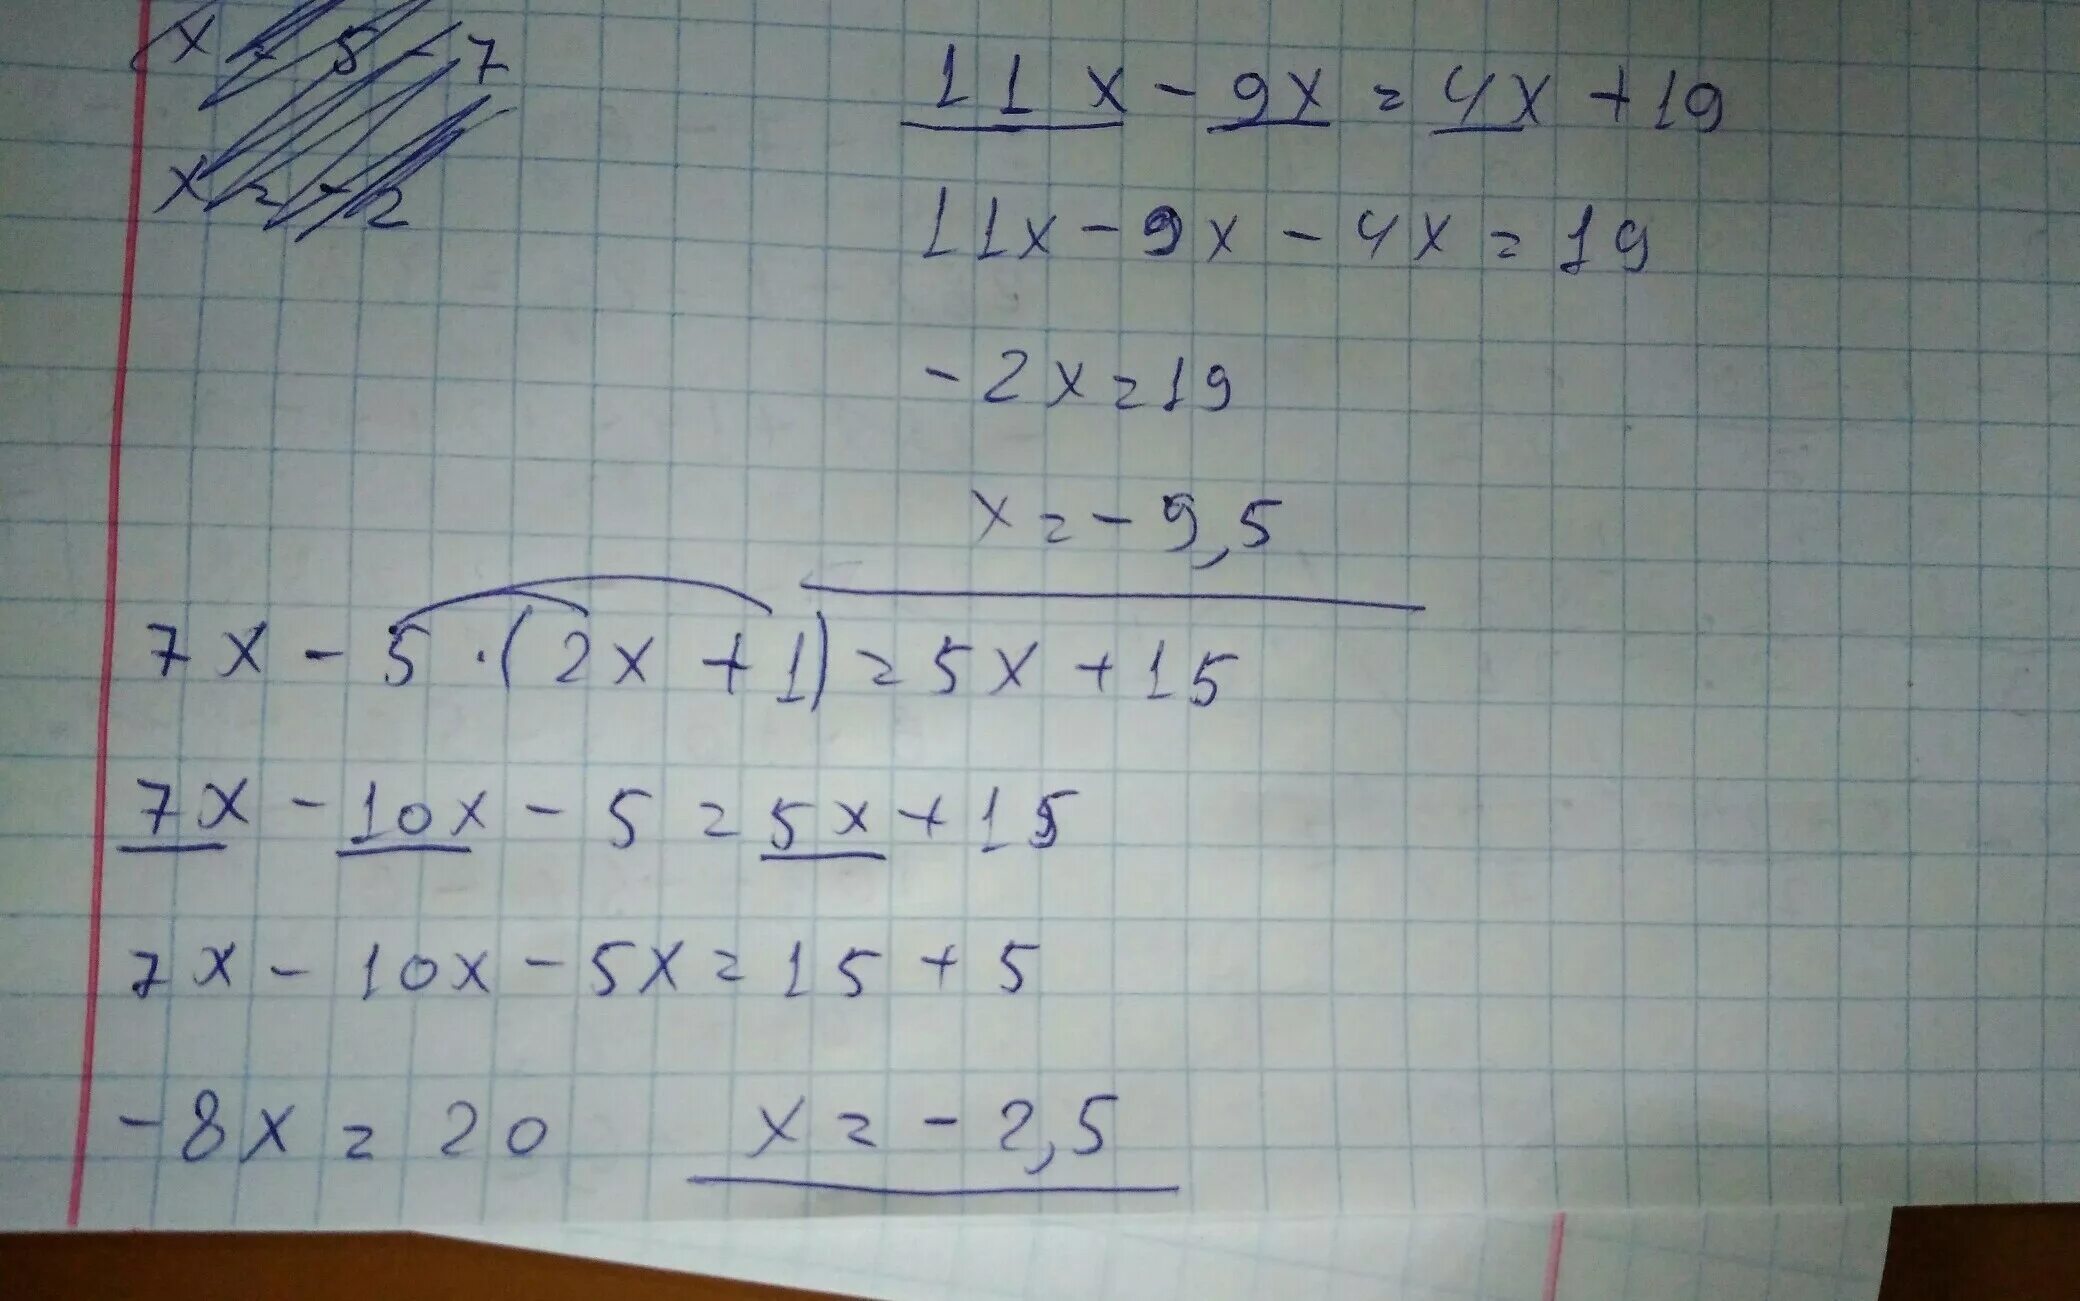 x = 5 - 7
x = - 2
11x - 9x = 4x + 19
11x - 9x - 4x = 19
- 2x = 19
x = - 9,5
7x - 5 · (2x + 1) = 5x + 15
7x - 10x - 5 = 5x + 15
7x - 10x - 5x = 15 + 5
- 8x = 20 x = - 2,5